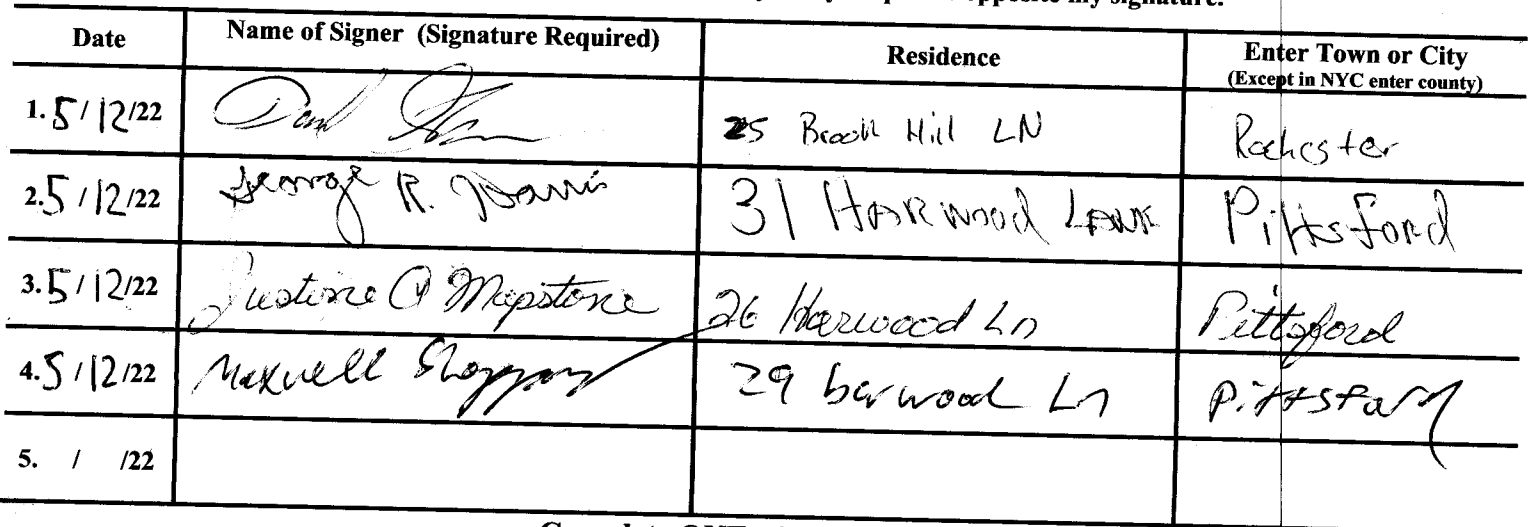 opposite my signature.
Date Name of Signer (Signature Required) Residence Enter Town or City
(Except in NYC enter county)
1. 5/12/22 25 Brook Hill LN Rochester
2. 5/12/22 George R. 31 HARwood LANE Pittsford
3. 5/12/22 Justine A Mapstone 26 Harwood Ln Pittsford
4. 5/12/22 Maxwell 29 barwood Ln Pittsford
5. / /22